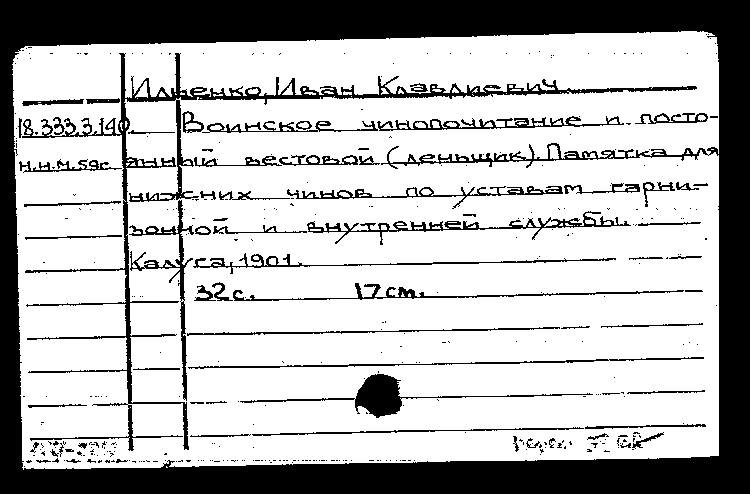 Ильенко, Иван Клавдиевич
18.333.3.140. Воинское чинопочитание и посто-
янный вестовой (деньщик). Памятка для
нижних чинов по уставам гарни-
зонной и внутренней службы.
Калуга, 1901.
32 с. 17 см.